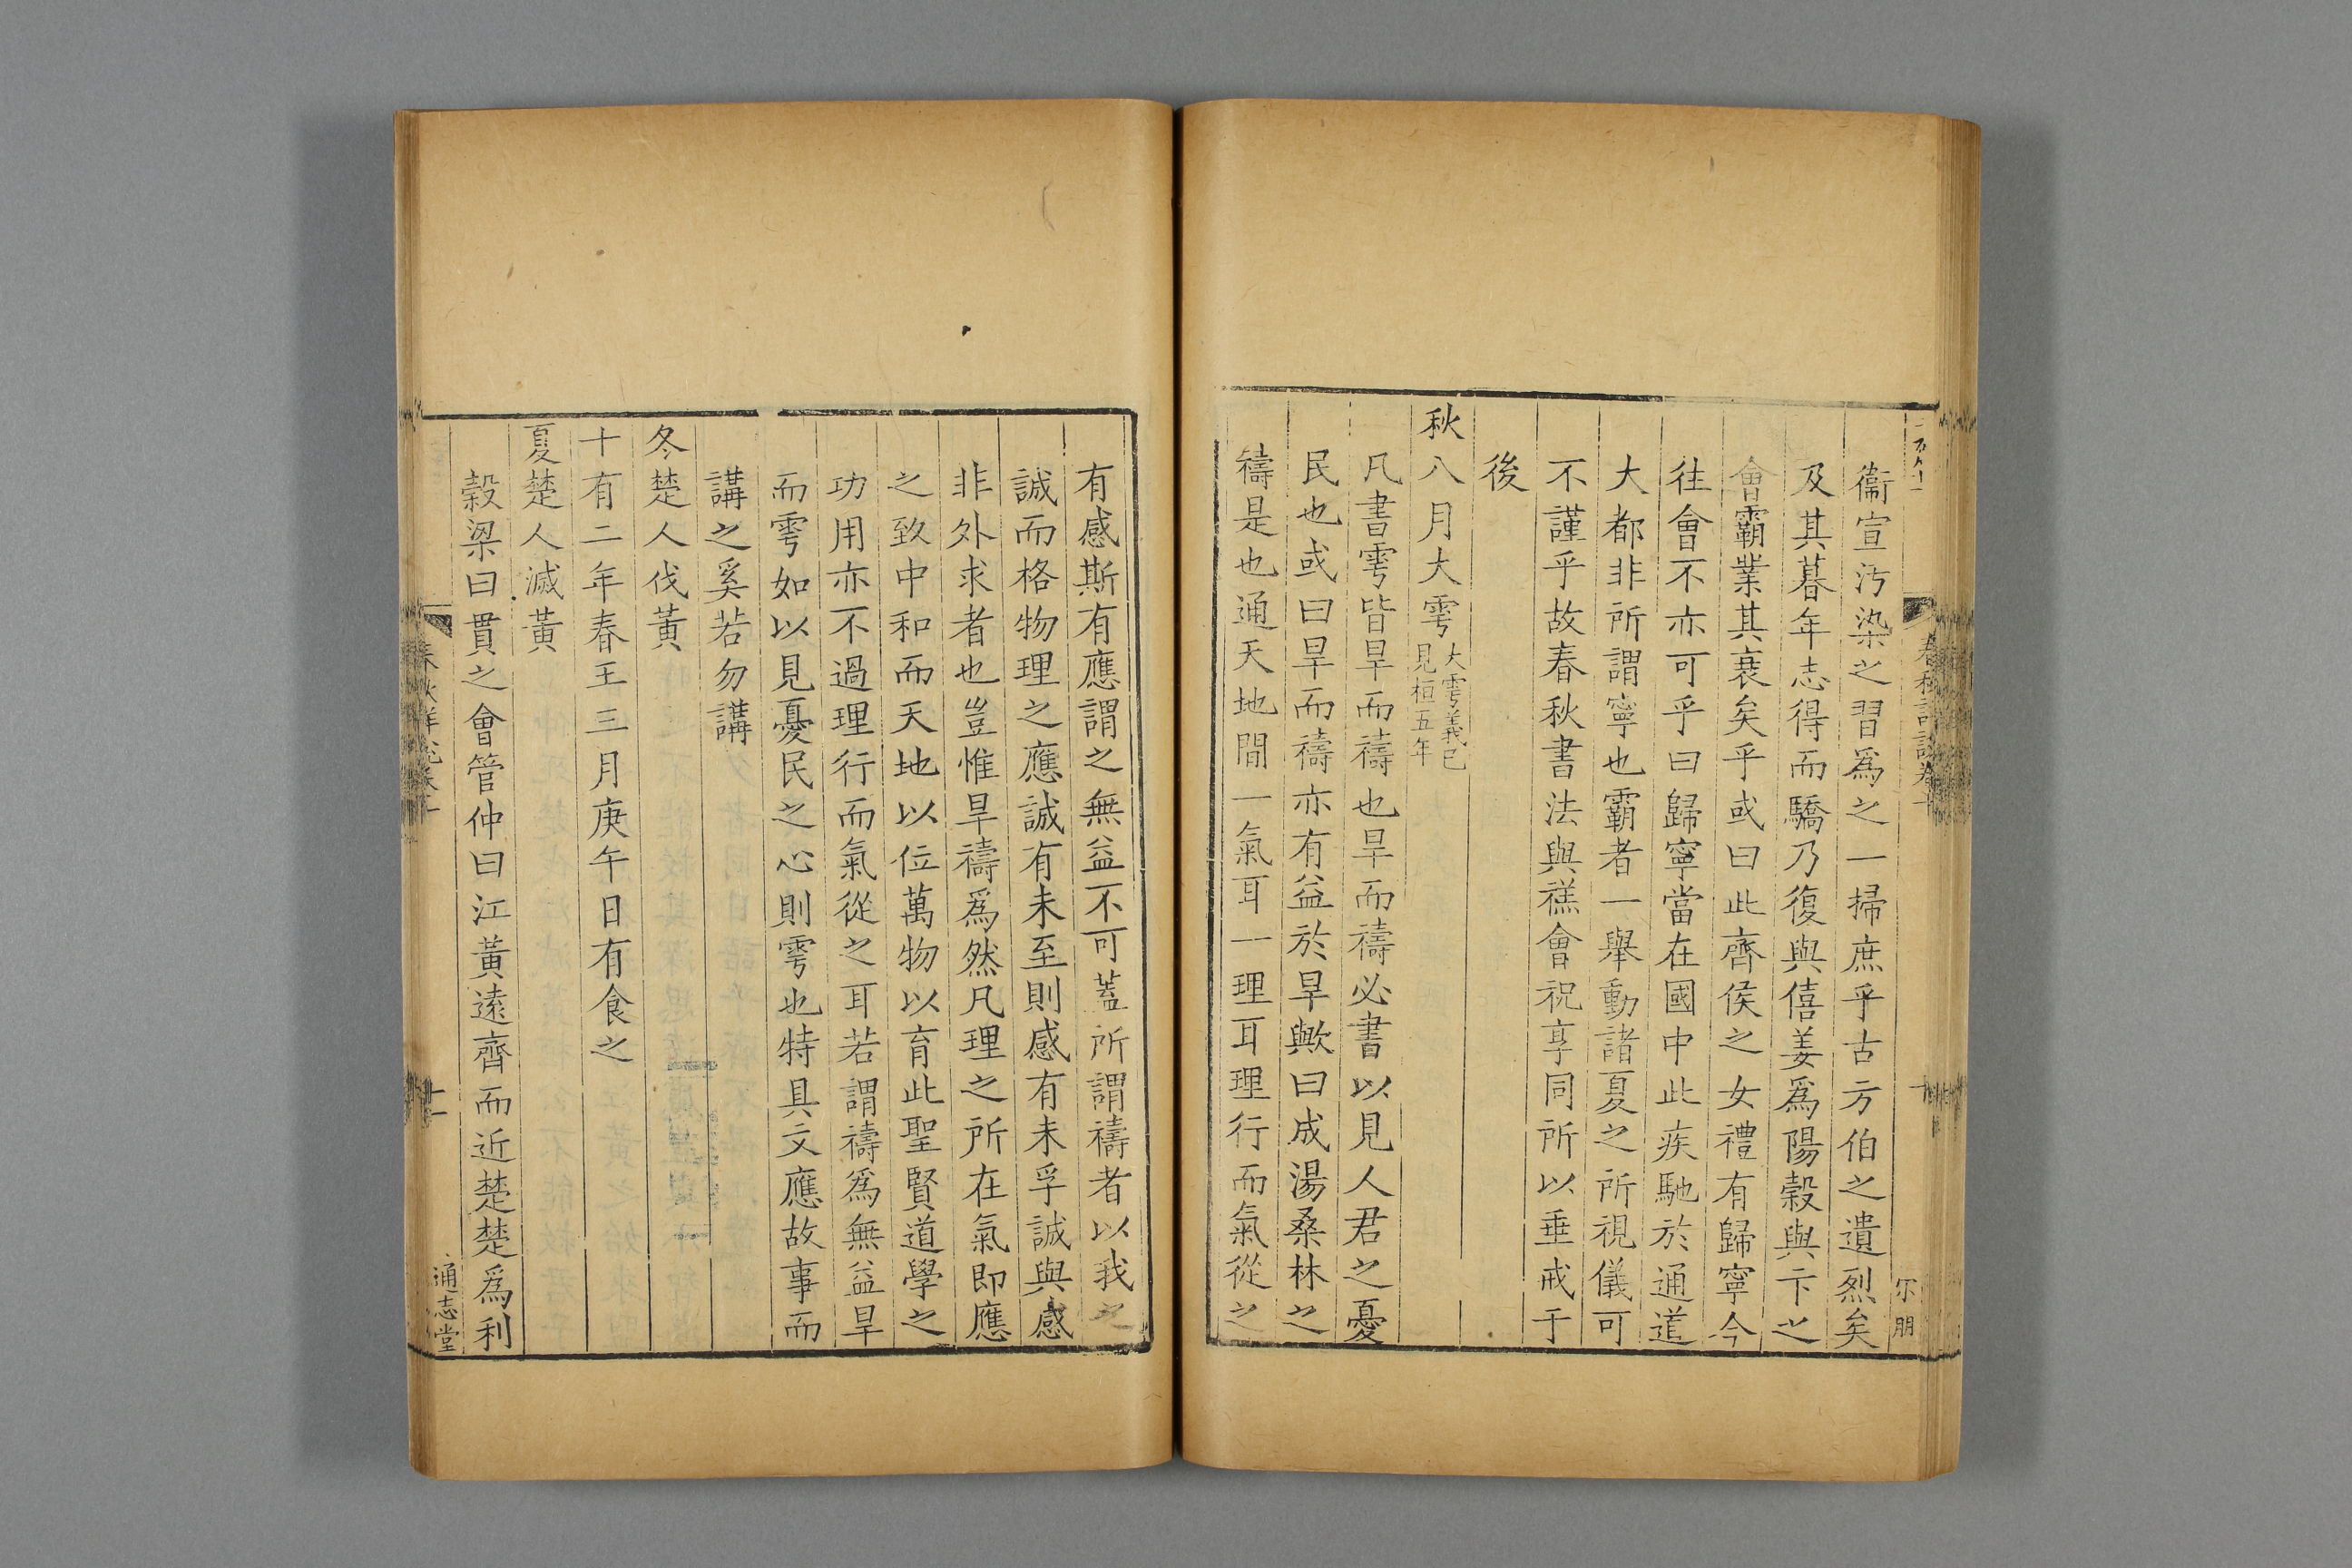 衞宣汚染之習爲之一掃庶乎古方伯之遺烈矣
及其暮年志得而驕乃復與僖姜爲陽穀與卞之
會霸業其衰矣乎或曰此齊侯之女禮有歸寧今
往會不亦可乎曰歸寧當在國中此疾馳於通道
大都非所謂寧也霸者一舉動諸夏之所視儀可
不謹乎故春秋書法與禚會祝享同所以垂戒于
後
秋八月大雩大雩義已見桓五年
凡書雩皆旱而禱也旱而禱必書以見人君之憂
民也或曰旱而禱亦有益於旱歟曰成湯桑林之
禱是也通天地間一氣耳一理耳理行而氣從之
有感斯有應謂之無益不可蓋所謂禱者以我之
誠而格物理之應誠有未至則感有未孚誠與感
非外求者也豈惟旱禱爲然凡理之所在氣即應
之致中和而天地以位萬物以育此聖賢道學之
功用亦不過理行而氣從之耳若謂禱爲無益旱
而雩如以見憂民之心則雩也特具文應故事而
講之奚若勿講
冬楚人伐黃
十有二年春王三月庚午日有食之
夏楚人滅黃
穀梁曰貫之會管仲曰江黃遠齊而近楚楚爲利
春秋詳說卷十
十一
通志堂